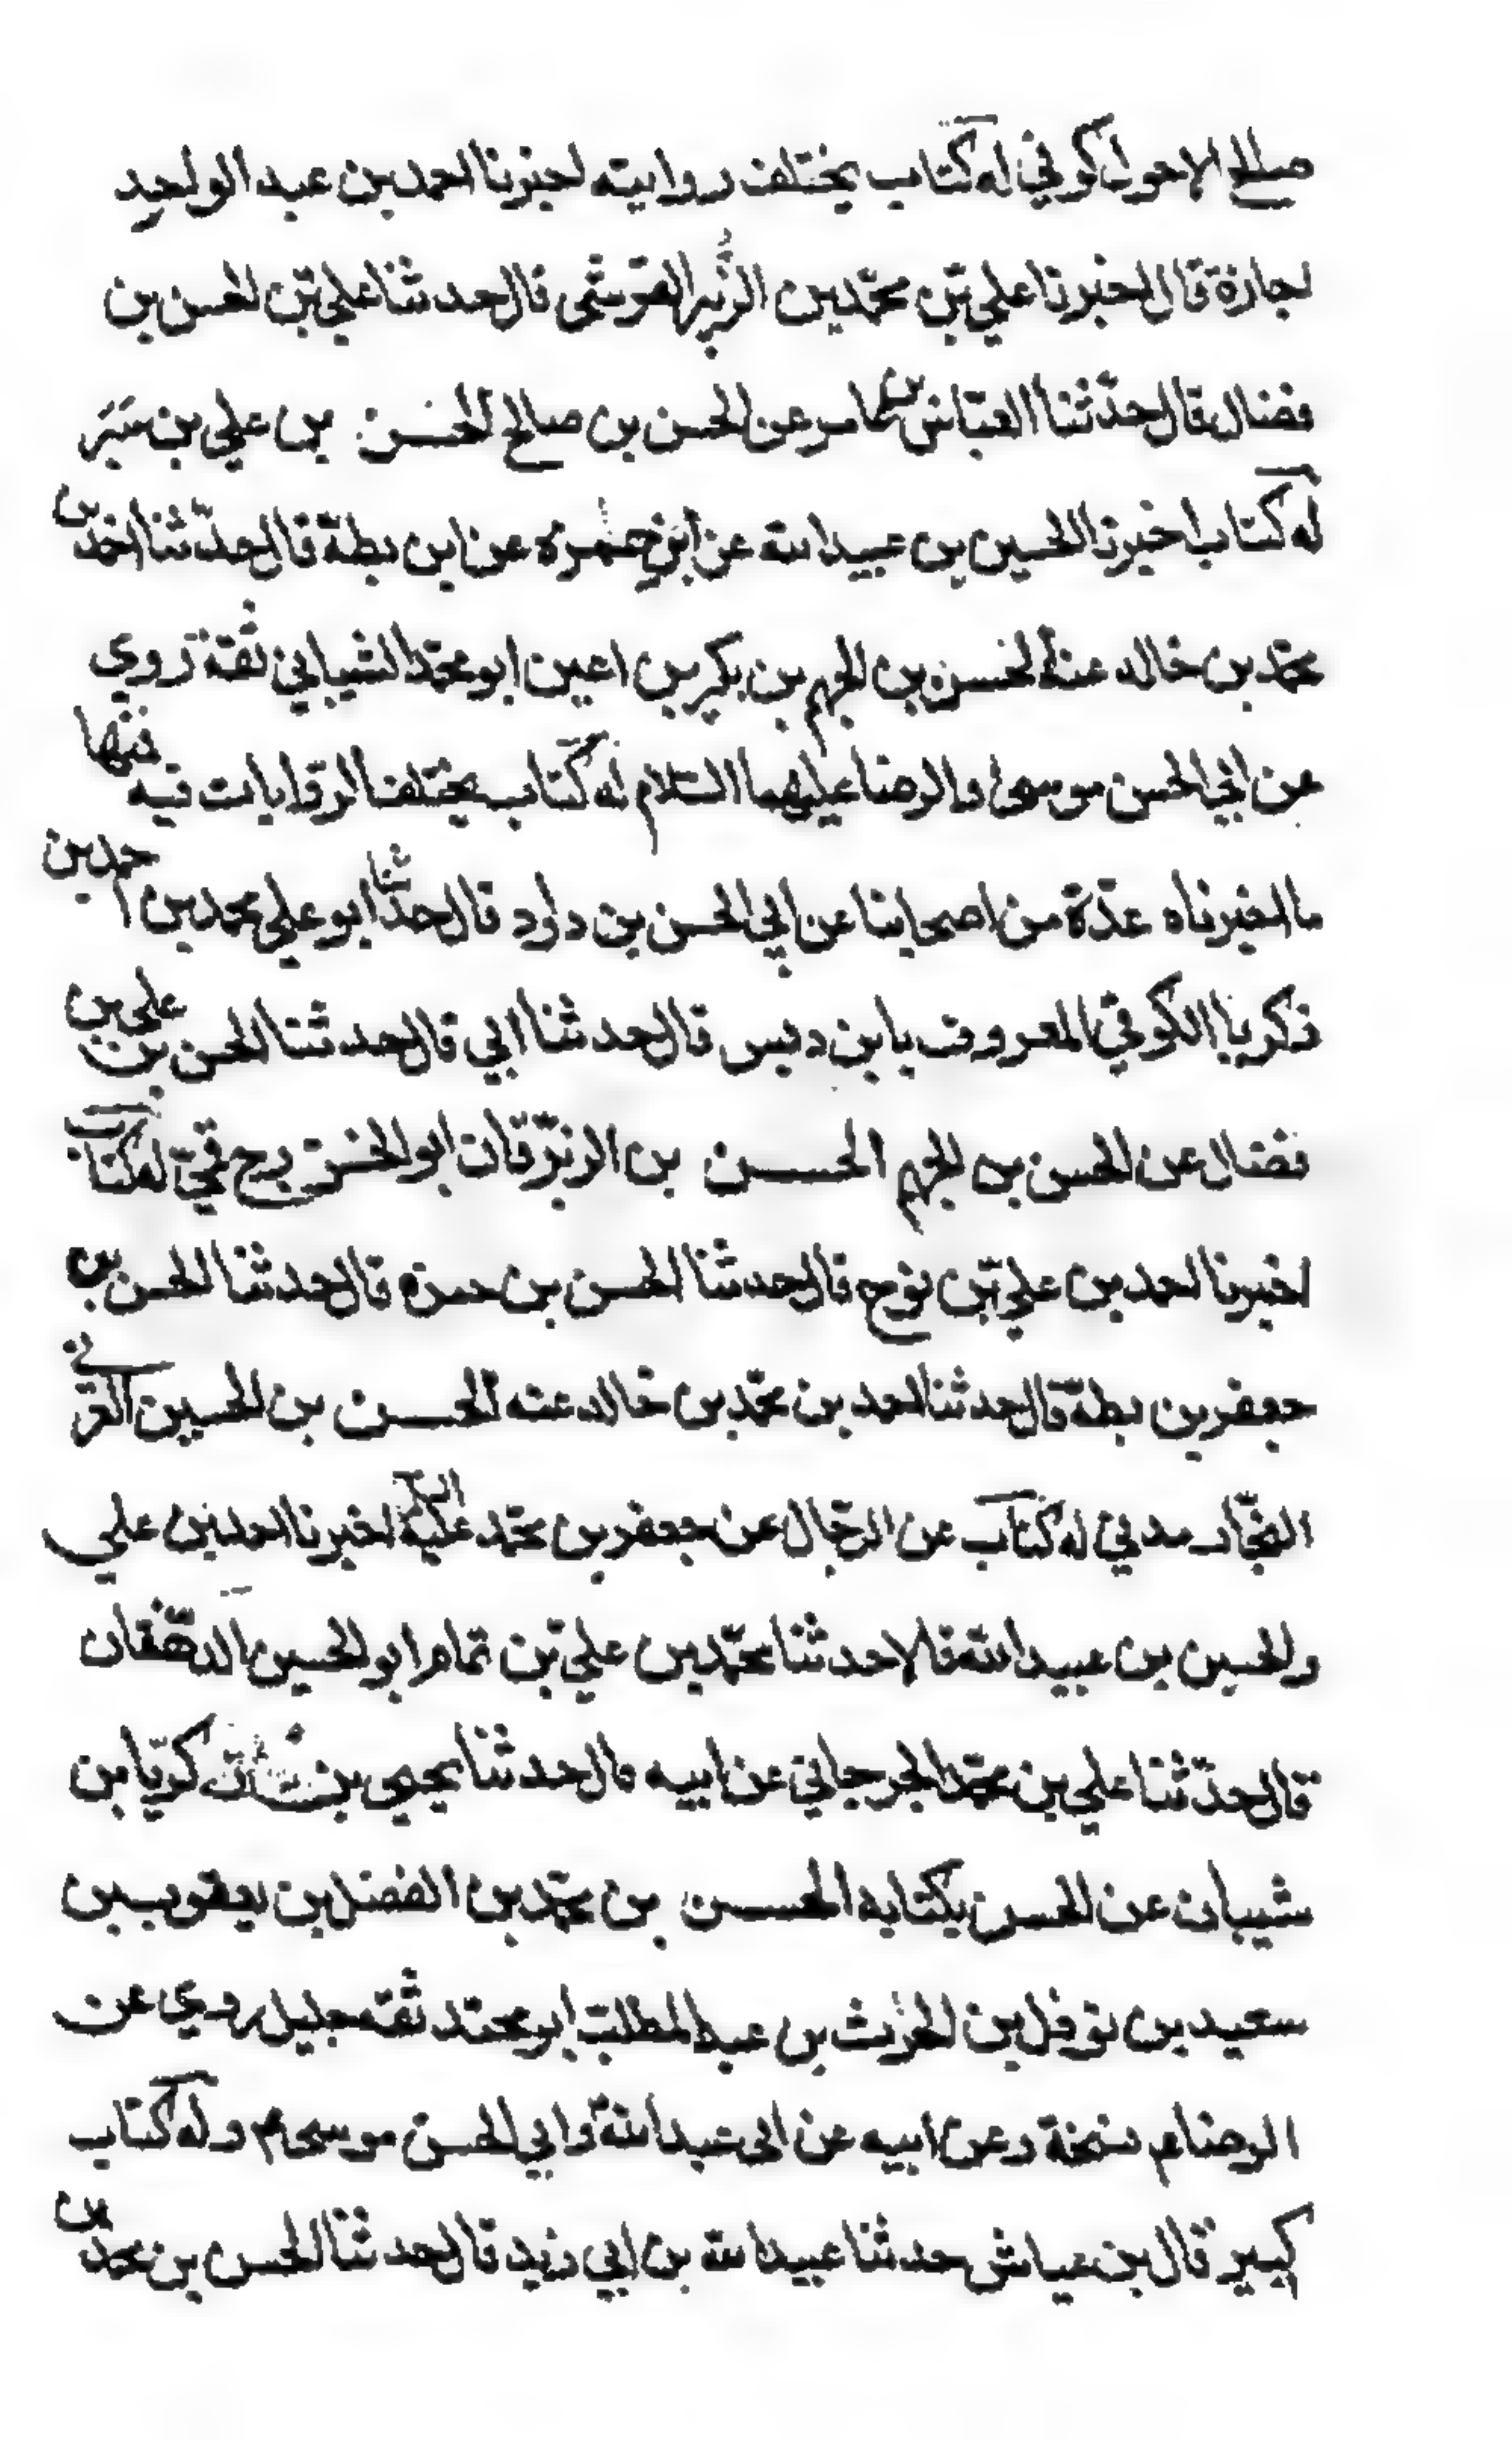 صالح الاحول كوفي له كتاب يختلف روايته اخبرنا احمد بن عبد الواحد
اجازة قال اخبرنا علي بن محمد بن الزبير القرشي قال حدثنا علي بن الحسن بن
فضال قال حدثنا العباس بن عامر عن الحسن بن صالح الحسن بن علي بن
له كتاب اخبرنا الحسين بن عبيد الله عن ابن حمزه عن ابن بطة قال حدثنا احمد بن
محمد بن خالد عنه الحسن بن الجهم بن بكير بن اعين ابو محمد الشيباني ثقة روي
عن ابي الحسن موسى والرضا عليهما السلام له كتاب يختلف الروايات فيه فمنها
ما اخبرناه عدة من اصحابنا عن ابي الحسن بن داود قال حدثنا ابو علي محمد بن احمد بن
زكريا الكوفي المعروف بابن دبس قال حدثنا ابي قال حدثنا الحسن بن علي بن
فضال عن الحسن بن الجهم الحسن بن الزبرقان ابو الخزرج قمي له كتاب
اخبرنا احمد بن علي بن نوح قال حدثنا الحسن بن حمزه قال حدثنا الحسن بن
جعفر بن بطة قال حدثنا احمد بن محمد بن خالد عنه الحسن بن الحسين العرني
النجار مدني له كتاب عن الرجال عن جعفر بن محمد عليه السلم اخبرنا احمد بن علي
والحسين بن عبيد الله قالا حدثنا محمد بن علي بن تمام ابو الحسين الدهقان
قال حدثنا علي بن محمد الجرجاني عن ابيه قال حدثنا يحيي بن زكريا بن
شيبان عن الحسن بكتابه الحسن بن محمد بن الفضل بن يعقوب بن
سعيد بن نوفل بن الحرث بن عبد المطلب ابو محمد ثقه جليل روي عن
الرضا م نسخة وعن ابيه عن ابي عبد الله وابي الحسن موسى م وله كتاب
كبير قال بن عياش حدثنا عبيد الله بن ابي زيد قال حدثنا الحسن بن محمد بن